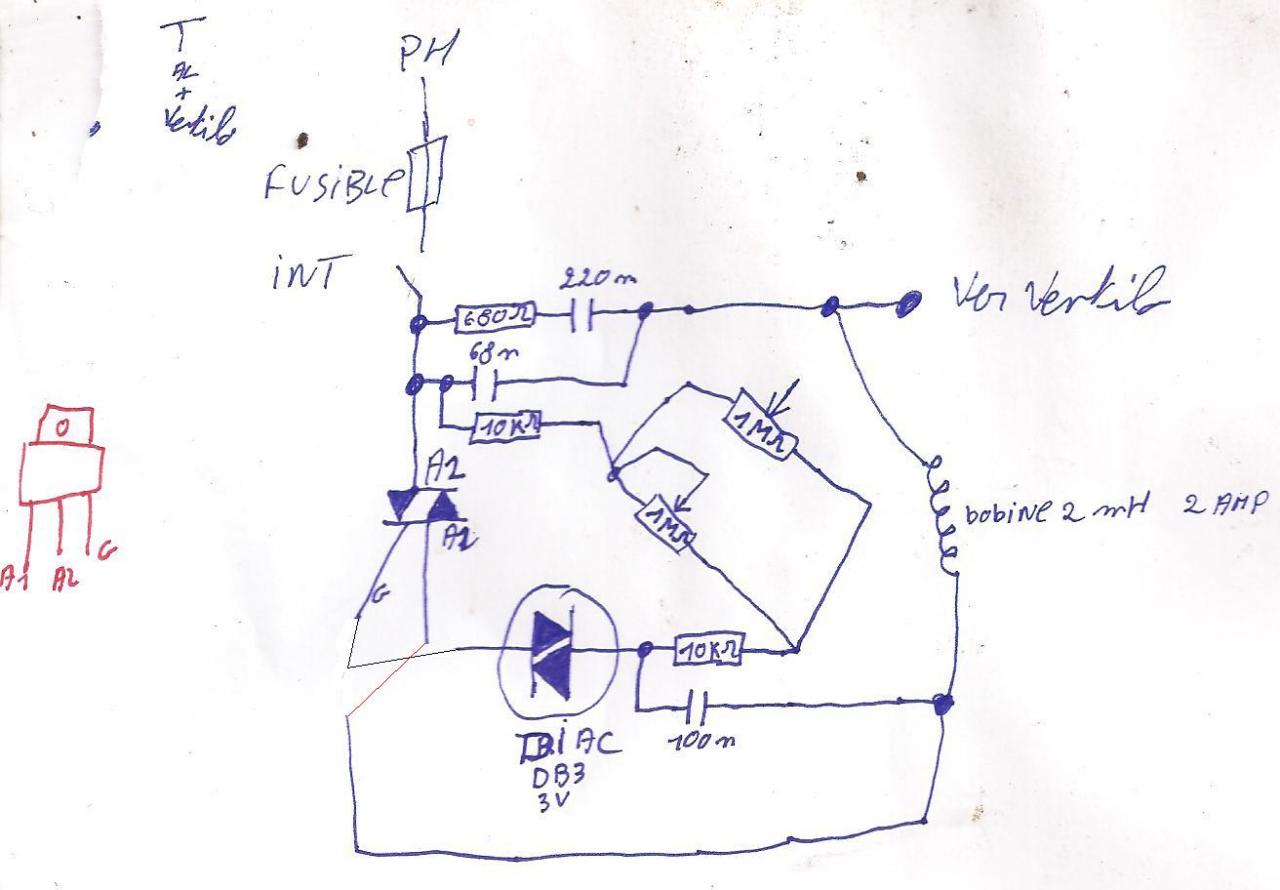 T
A2
+
Ventilo
PH
FUSIBLE
INT
220n
680Ω
Ver Ventilo
68n
10KΩ
1MΩ
A2
1MΩ
A1
bobine 2 mH 2 AMP
G
O
A1 A2 G
10KΩ
100n
DIAC
DB3
3V